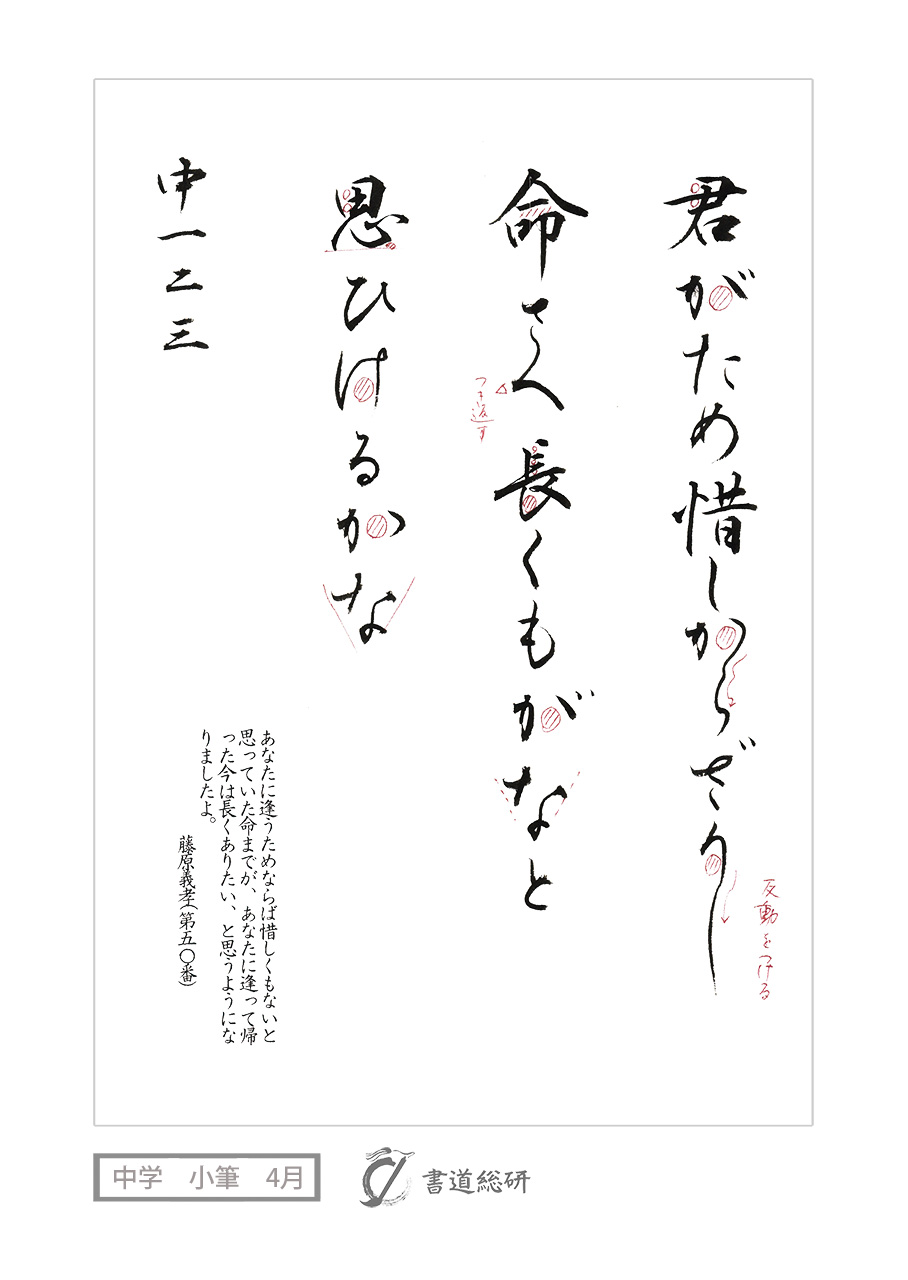 君がため惜しからざりし
反動をつける
命さへ長くもがなと
つき返す
思ひけるかな
中一二三
あなたに逢うためならば惜しくもないと
思っていた命までが、あなたに逢って帰
った今は長くありたい、と思うようにな
りましたよ。
藤原義孝(第五〇番)
中学　小筆　4月
書道総研